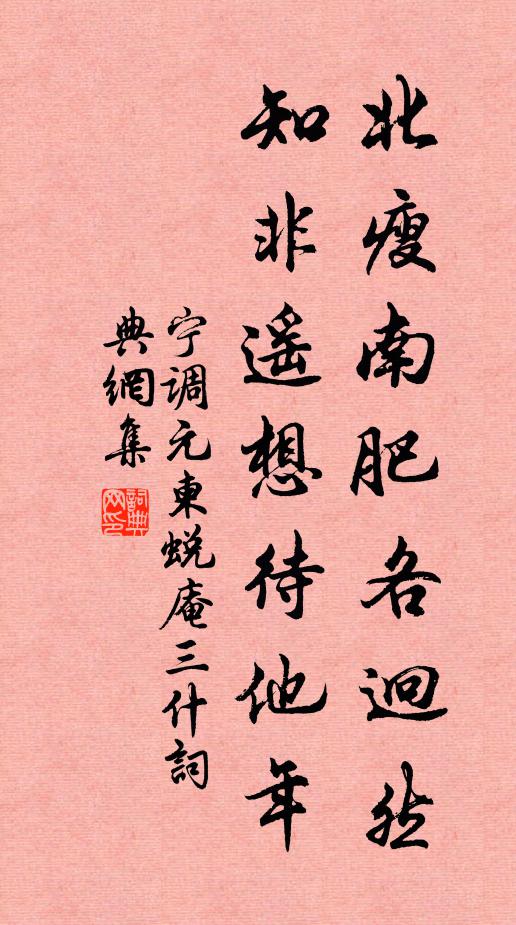 北瘦南肥各迥然
知非遥想待他年
宁调元東蜕庵三什詞
典網集
詞典网印